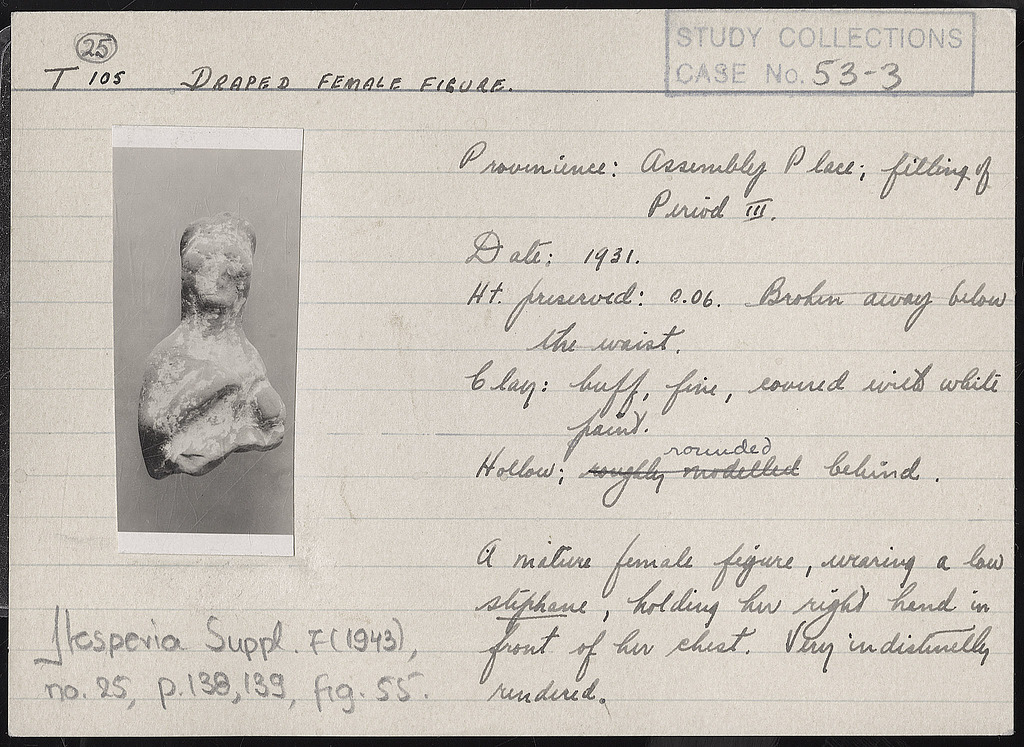 25
T 105 DRAPED FEMALE FIGURE.
STUDY COLLECTIONS
CASE No. 53-3
Provenience: Assembly Place; filling of
Period III.
Date: 1931.
Ht. preserved: 0.06. Broken away below
the waist.
Clay: buff, fine, covered with white
paint.
rounded
Hollow; roughly modelled behind.
A mature female figure, wearing a low
stephane, holding her right hand in
front of her chest. Very indistinctly
rendered.
Hesperia Suppl. 7 (1943),
no. 25, p. 138, 139, fig. 55.